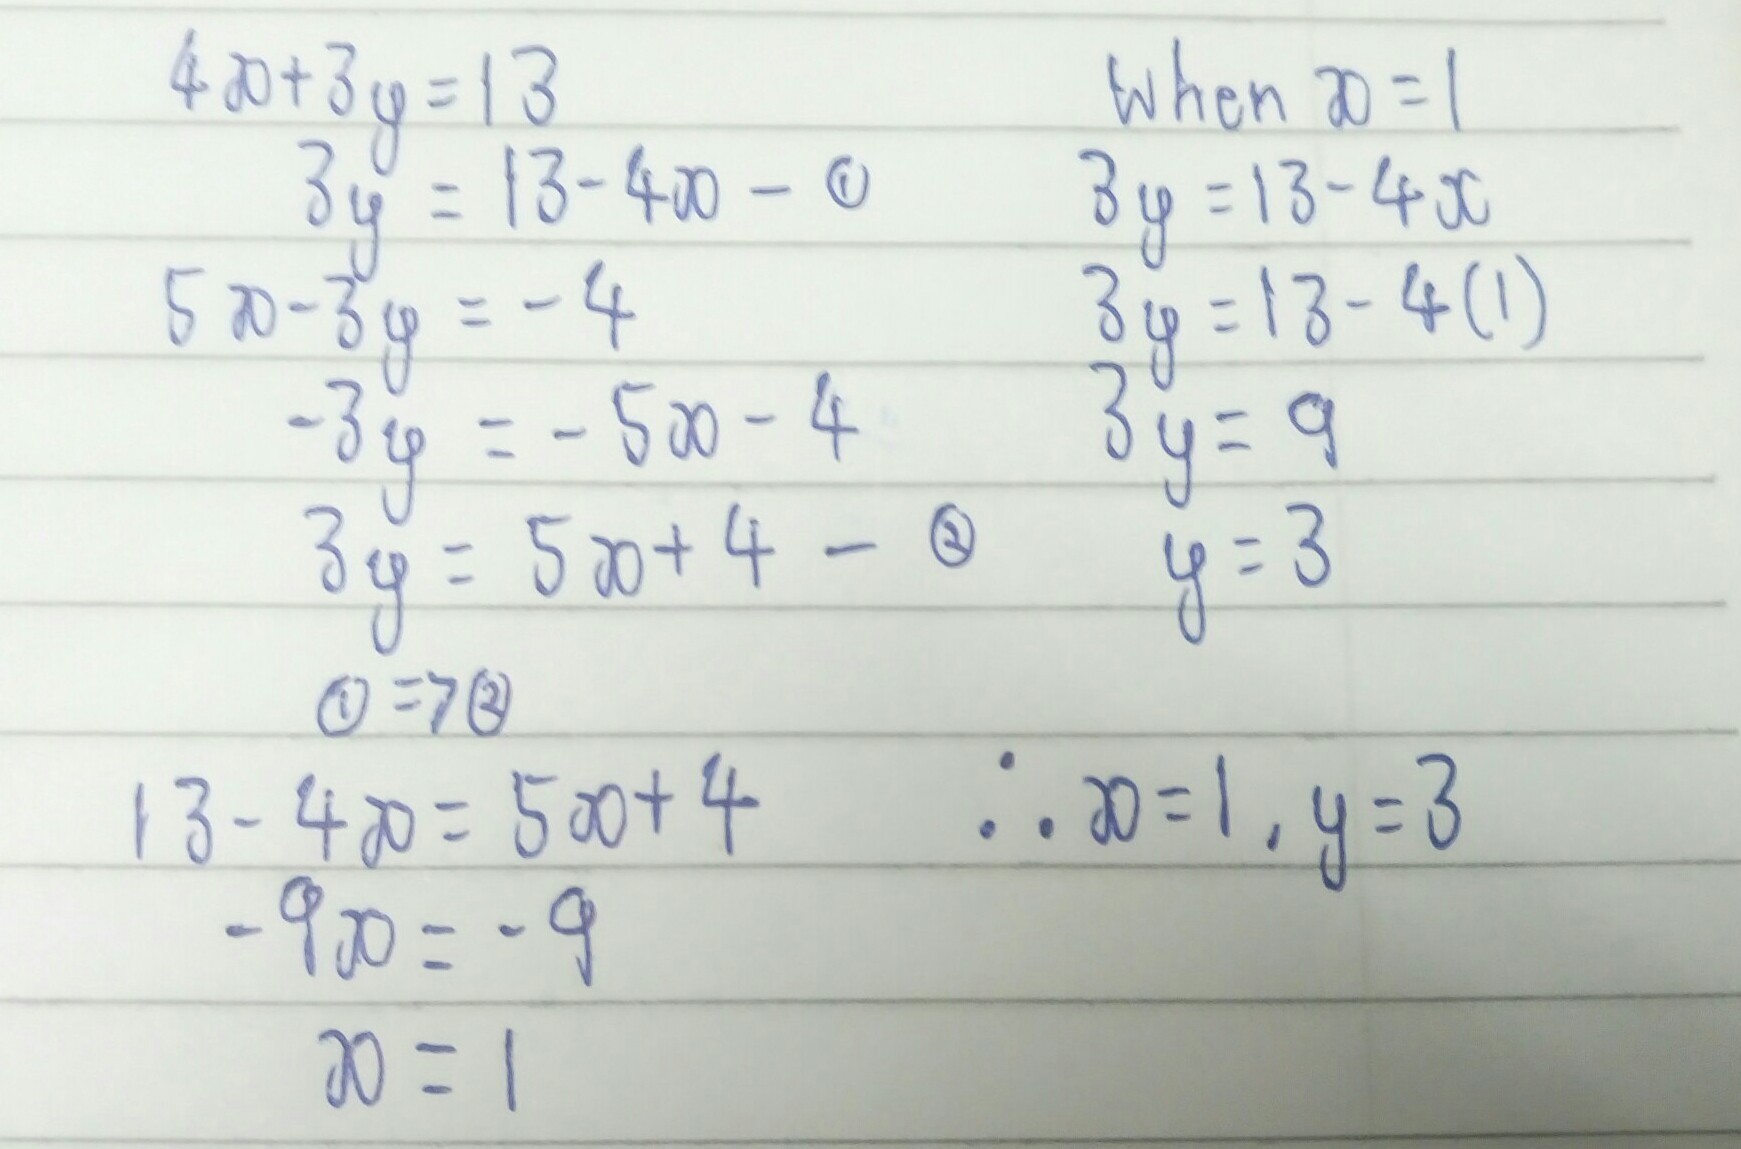 4x+3y=13
3y = 13-4x - ①
5x-3y = -4
-3y = -5x-4
3y = 5x+4 - ②
①=>②
13-4x = 5x+4
-9x = -9
x = 1
When x=1
3y=13-4x
3y=13-4(1)
3y=9
y=3
∴ x=1, y=3